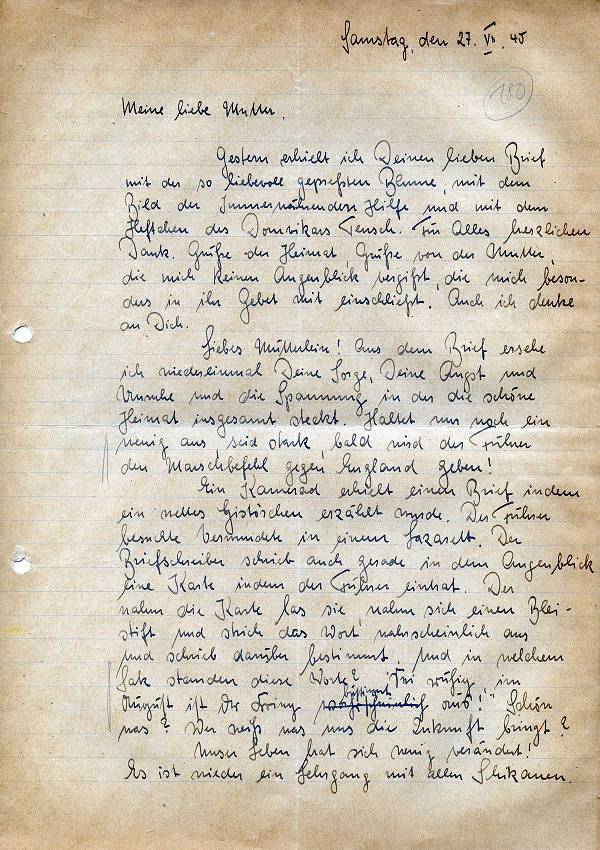 Samstag, den 27. VII. 40
180
Meine liebe Mutter.
Gestern erhielt ich Deinen lieben Brief
mit der so liebevoll gepreßten Blume, mit dem
Bild der Immerwährenden Hilfe und mit dem
Heftchen des Domvikars Teusch. Für Alles herzlichen
Dank. Grüße der Heimat, Grüße von der Mutter,
die mich keinen Augenblick vergißt, die mich beson-
ders in ihr Gebet mit einschließt. Auch ich denke
an Dich.
Liebes Mütterlein! Aus dem Brief ersehe
ich wiedereinmal Deine Sorge, Deine Angst und
Unruhe und die Spannung in der die schöne
Heimat insgesamt steckt. Haltet nur noch ein
wenig aus, seid stark, bald wird der Führer
den Marschbefehl gegen England geben!
Ein Kamerad erhielt einen Brief indem
ein nettes Histöschen erzählt wurde. Der Führer
besuchte Verwundete in einem Lazarett. Der
Briefschreiber schrieb auch gerade in dem Augenblick
eine Karte indem der Führer eintrat. Der
nahm die Karte, las sie, nahm sich einen Blei-
stift und strich das Wort wahrscheinlich aus
und schrieb darüber bestimmt. Und in welchem
Satz standen diese Worte? "Sei ruhig, im
August ist der Krieg wahrscheinlich bestimmt aus!" Schön
was? Wer weiß was uns die Zukunft bringt?
Unser Leben hat sich wenig verändert!
Es ist wieder ein Lehrgang mit allen Schikanen.